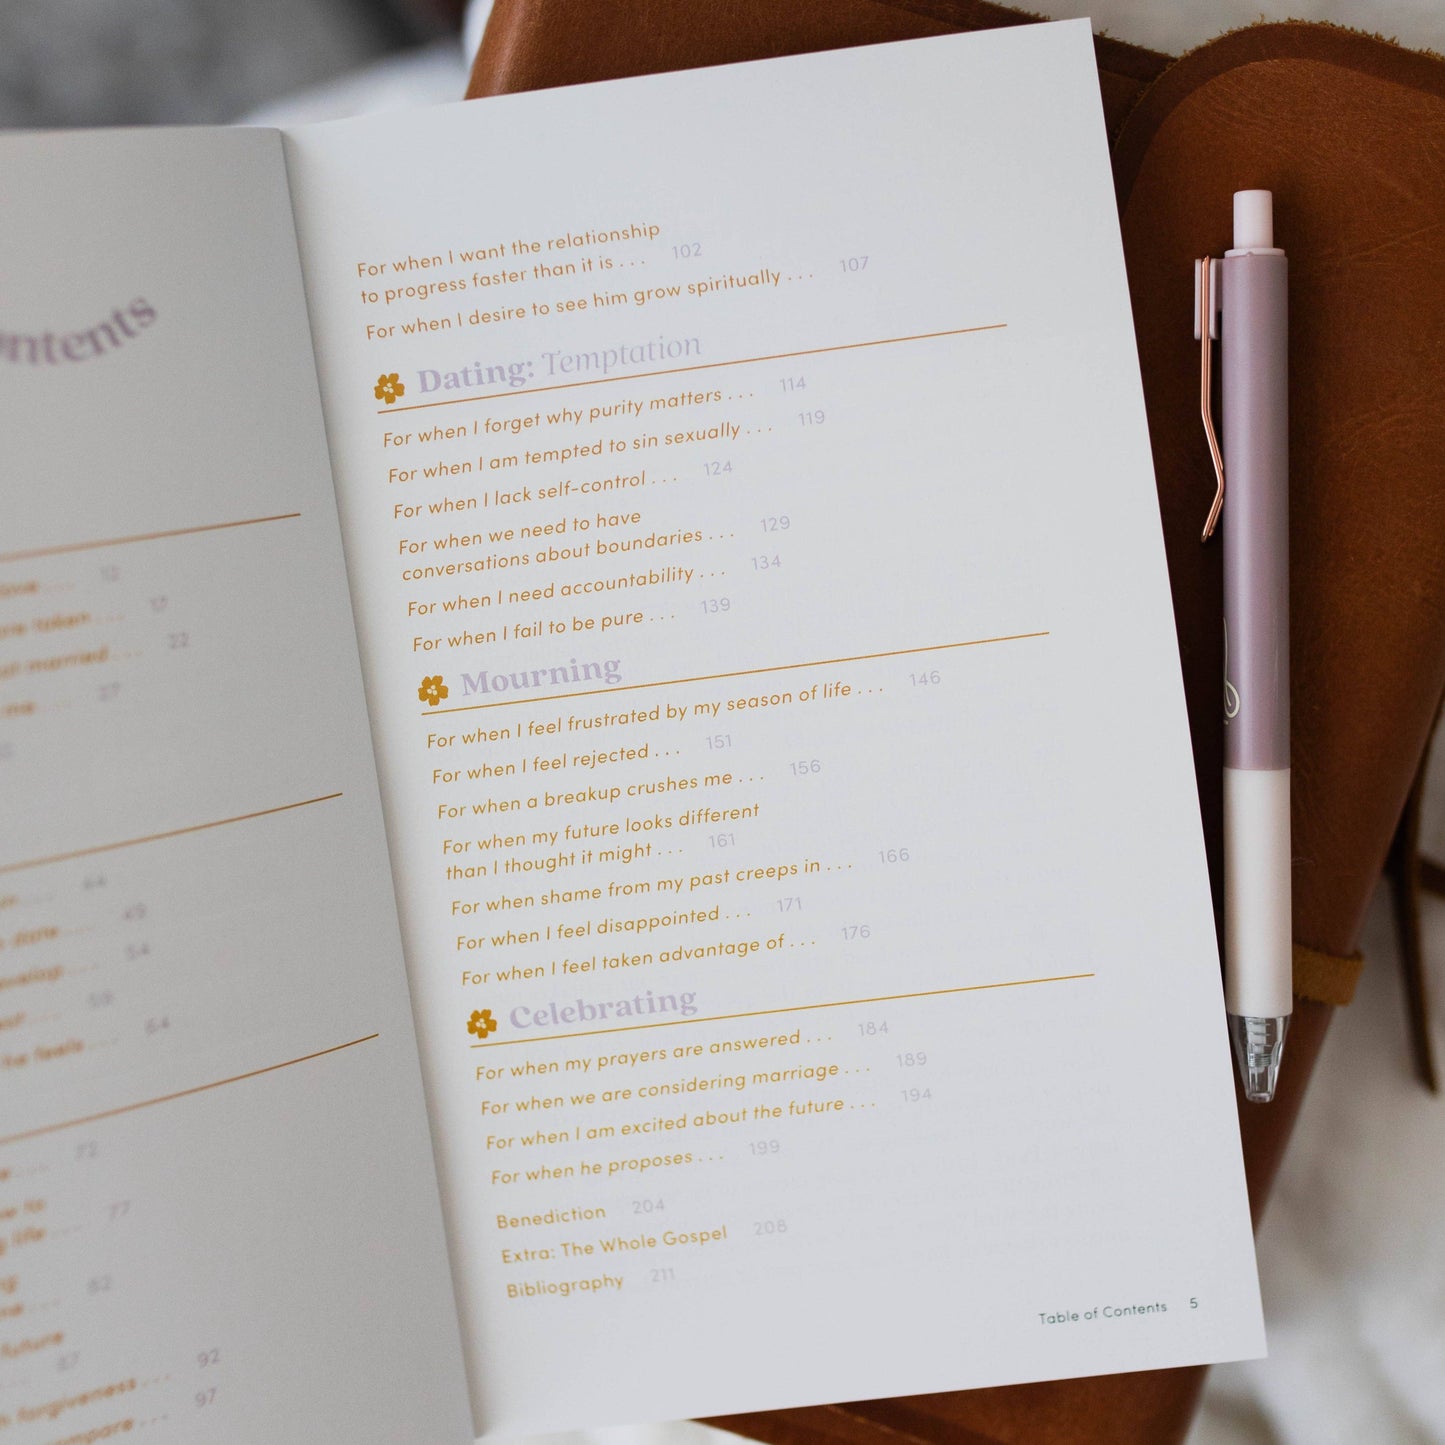 ontents
love . . . 12
are taken . . . 17
married . . . 22
me . . . 27
44
date . . . 49
54
59
he feels . . . 64
72
to
life . . . 77
82
future
87
forgiveness . . . 92
compare . . . 97
For when I want the relationship
to progress faster than it is . . . 102
For when I desire to see him grow spiritually . . . 107
Dating: Temptation
For when I forget why purity matters . . . 114
For when I am tempted to sin sexually . . . 119
For when I lack self-control . . . 124
For when we need to have
conversations about boundaries . . . 129
For when I need accountability . . . 134
For when I fail to be pure . . . 139
Mourning
For when I feel frustrated by my season of life . . . 146
For when I feel rejected . . . 151
For when a breakup crushes me . . . 156
For when my future looks different
than I thought it might . . . 161
For when shame from my past creeps in . . . 166
For when I feel disappointed . . . 171
For when I feel taken advantage of . . . 176
Celebrating
For when my prayers are answered . . . 184
For when we are considering marriage . . . 189
For when I am excited about the future . . . 194
For when he proposes . . . 199
Benediction 204
Extra: The Whole Gospel 208
Bibliography 211
Table of Contents 5